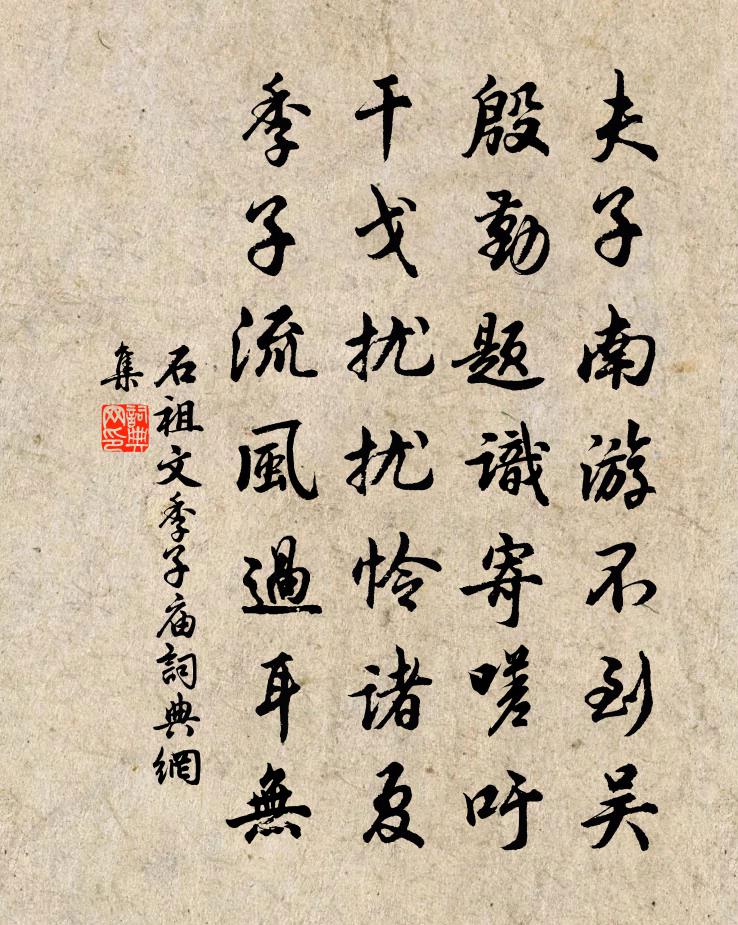 夫子南游不到吴
殷勤题識寄嗟吁
干戈扰扰怜诸夏
季子流風過耳無
石祖文季子庙詞典網
集
詞典
网印